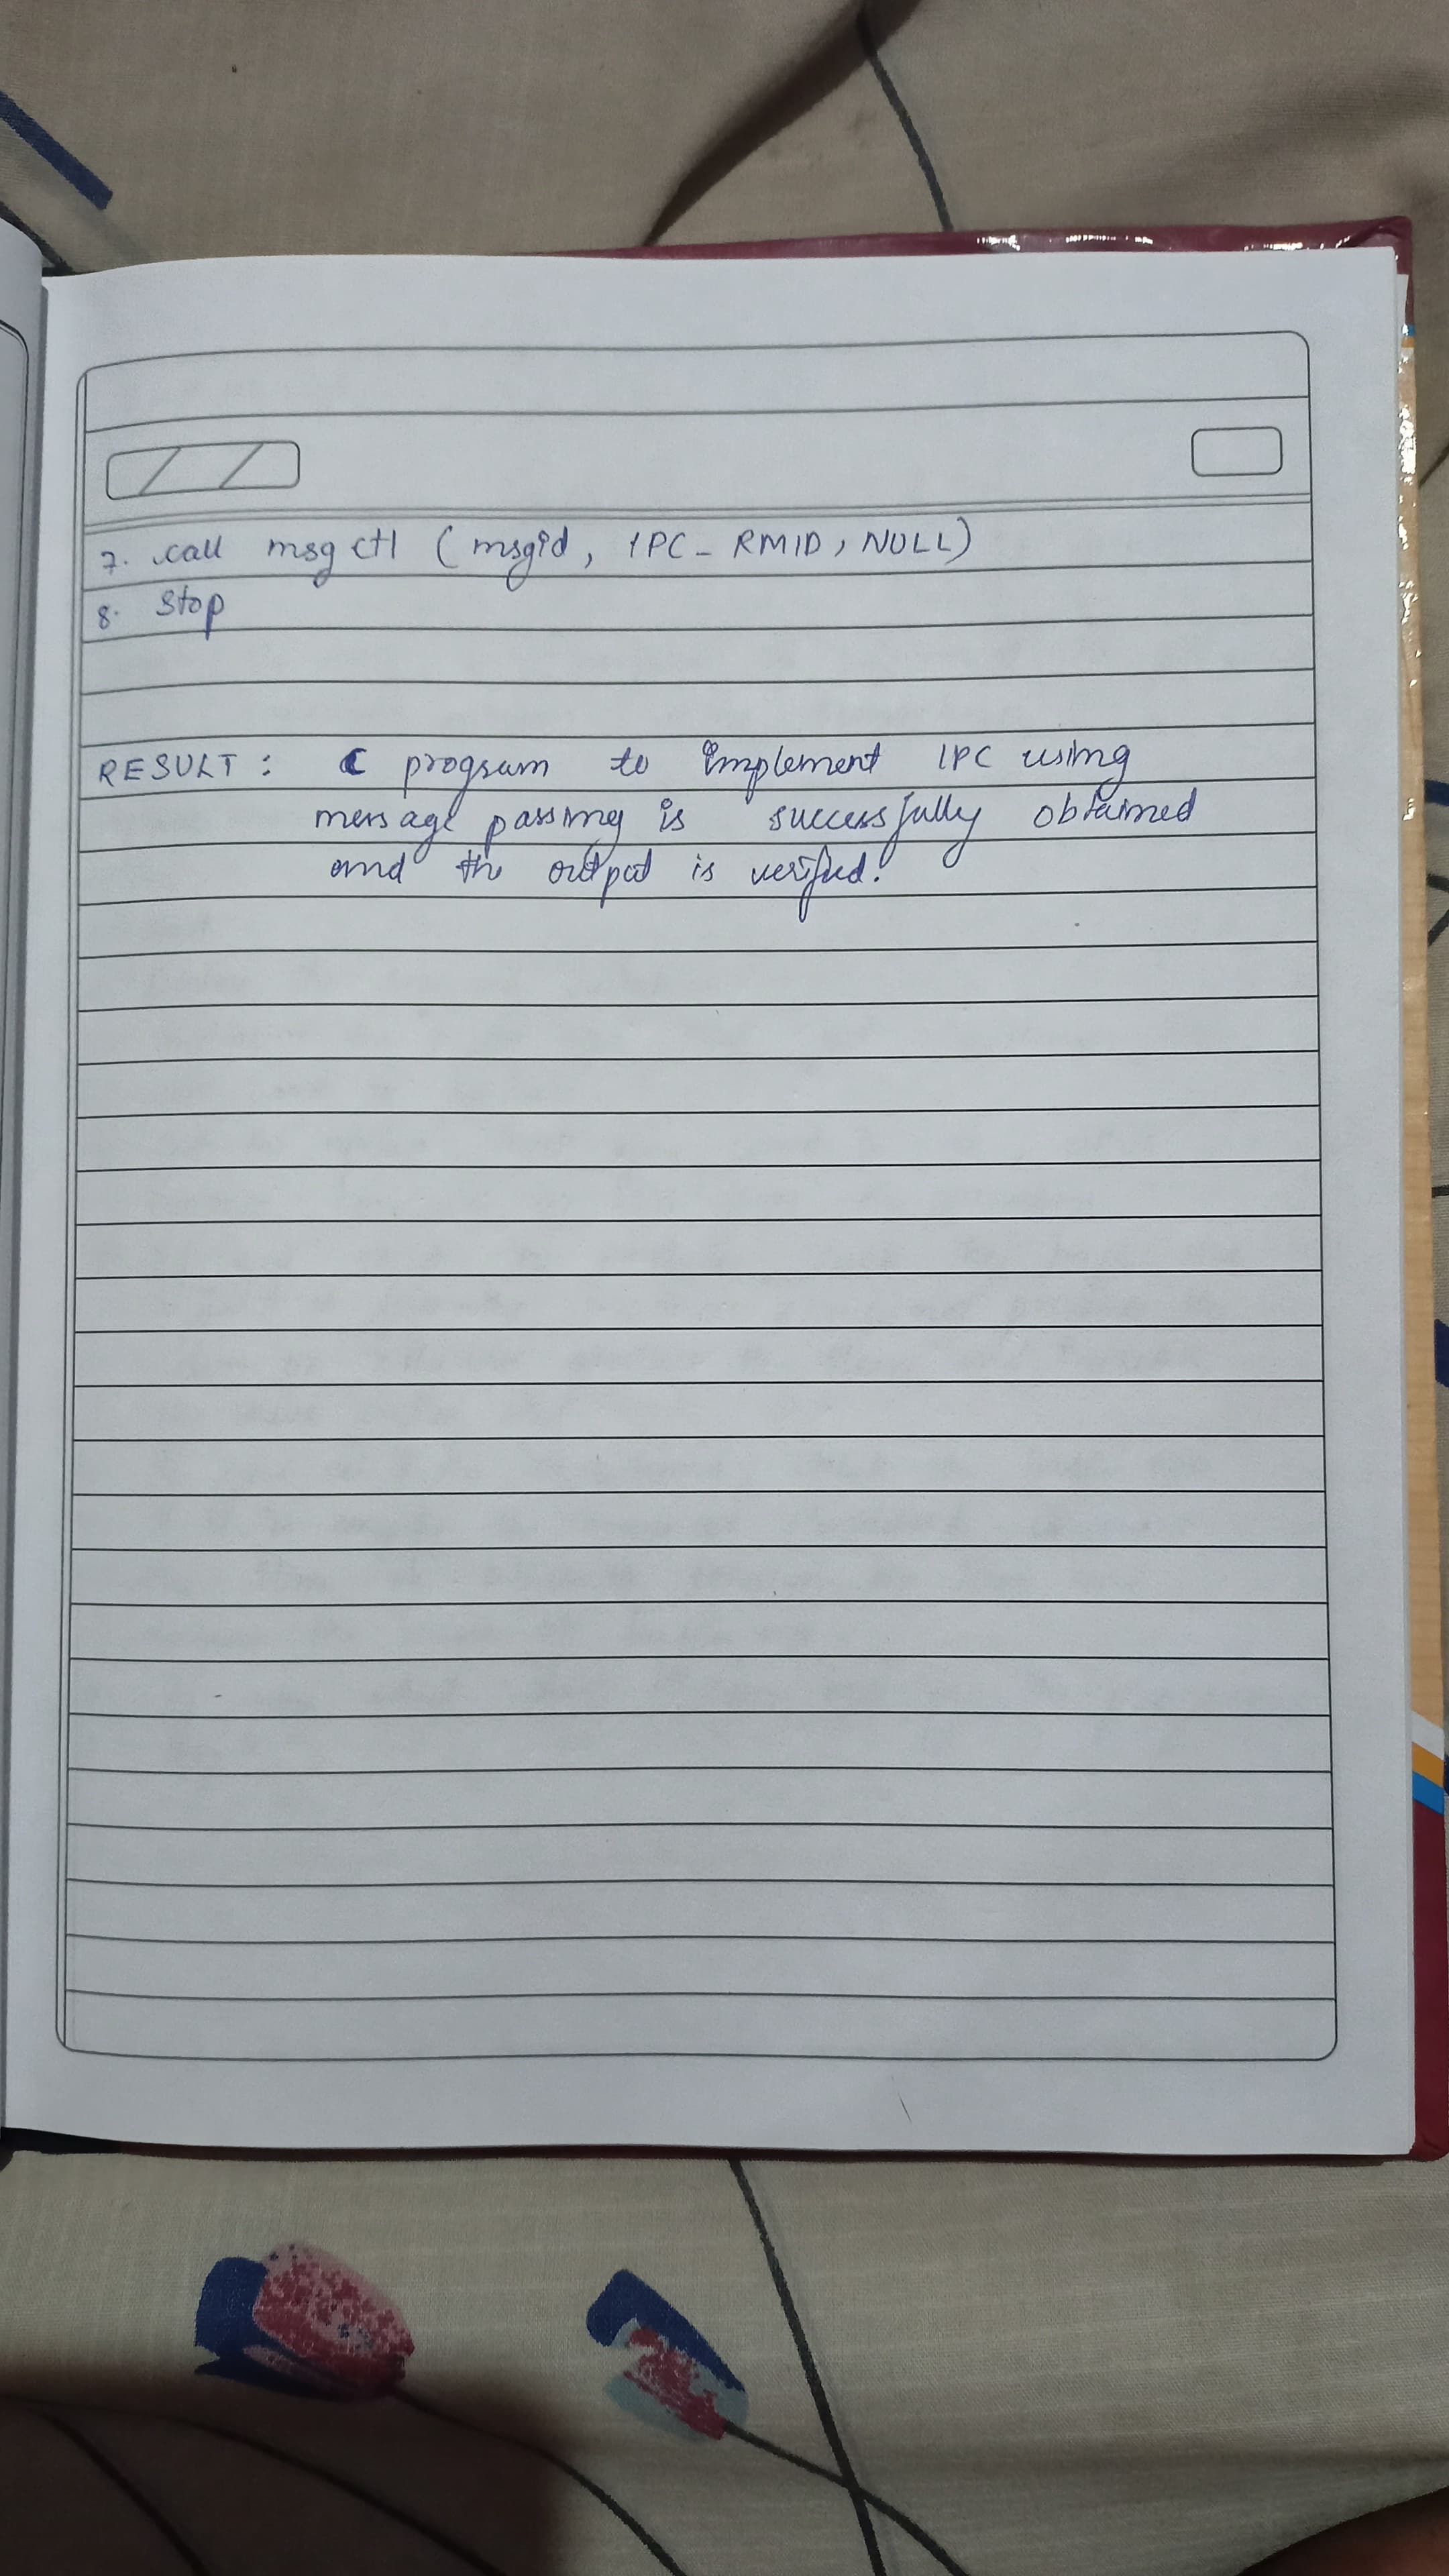 7. call msgctl (msgid, IPC_RMID, NULL)
8. Stop
RESULT : C program to implement IPC using
message passing is successfully obtained
and the output is verified.